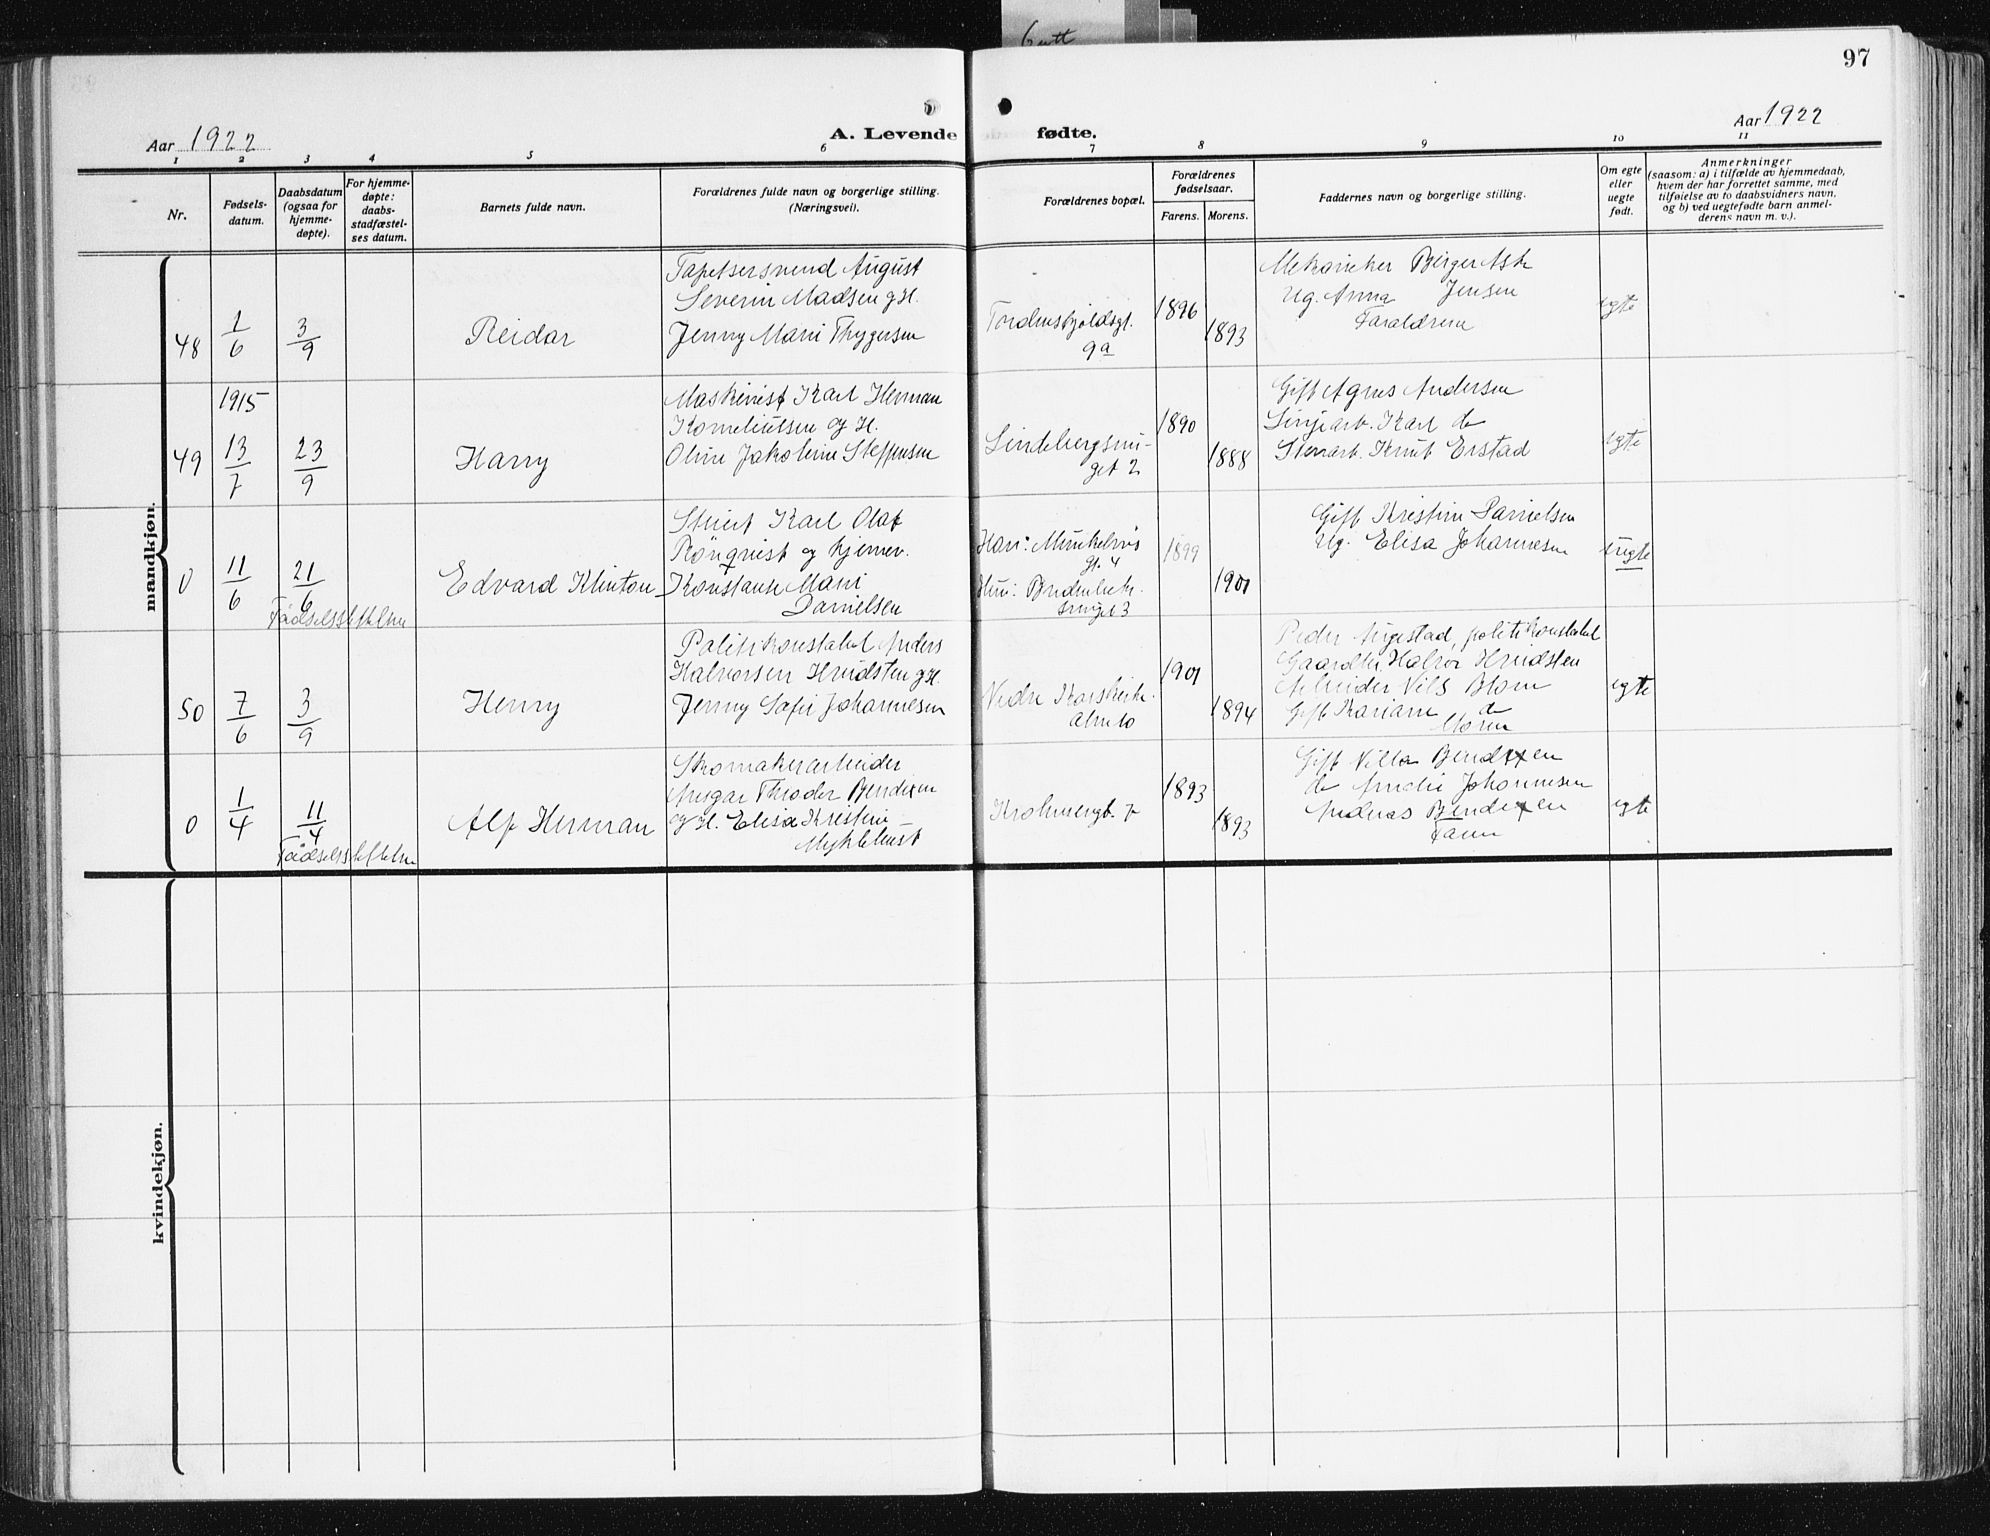 Gutt
97
Aar 1922
A. Levende fødte.
Aar 1922
1 2 3 4 5 6 7 8 9 10 11
Nr.
Fødsels-
datum.
Daabsdatum
(ogsaa for
hjemme-
døpte).
For hjemme-
døpte:
daabs-
stadfæstel-
ses datum.
Barnets fulde navn.
Forældrenes fulde navn og borgerlige stilling.
(Næringsvei).
Forældrenes bopæl.
Forældrenes
fødselsaar.
Farens. Morens.
Faddernes navn og borgerlige stilling.
Om egte
eller
uegte
født.
Anmerkninger
(saasom: a) i tilfælde av hjemmedaab,
hvem der har forrettet samme, med
tilføielse av to daabsvidners navn,
og b) ved uegtefødte barn anmel-
derens navn m. v.).
mandkjøn.
48
1/6
3/9
Reidar
Tapetsersvend August
Severin Madsen g H.
Jenny Marie Thygersen
Tordenskjoldsgt.
9a
1896
1893
Mekaniker Birger Ask
Ug. Anna Jensen
Faraldrene
egte
49
1915
13/7
23/9
Harry
Maskinist Karl Herman
Korneliutsen og H.
Oline Jakobine Steffensen
1890
1888
Gift Agnes Andersen
Karl do
Stenarb. Knut Erstad
egte
0
11/6
21/6
Fødselsseddelen
Edvard Klinton
Stuert Karl Olaf
Rönqvist og hjemev.
Konstanse Marie
Danielsen
Han: Munkebøs
gt. 4
Hun:
smuget 3
1899
1901
Gift Kristine Danielsen
Ug. Elisa Johannesen
uegte
50
7/6
3/9
Henny
Politikonstabel Anders
Halvorsen Hundsten g H.
Jenny Sofie Johannesen
Nedre Korskirke-
alm 10
1901
1894
Peder Augestad, politikonstabel
Gaardbr. Halvor Hundsten
Arbeider Nils Blom
Gift Mariane do
Moren
egte
0
1/4
11/4
Fødselsseddelen
Alf Herman
Skomakerarbeider
Ansgar Theodor Bendixen
og H. Elisa Kristine
Myklebust
Krohnengt. 7
1893
1893
Gift Villa Bendixen
do Amelie Johannesen
Andreas Bendixen
Faren
egte
kvindekjøn.